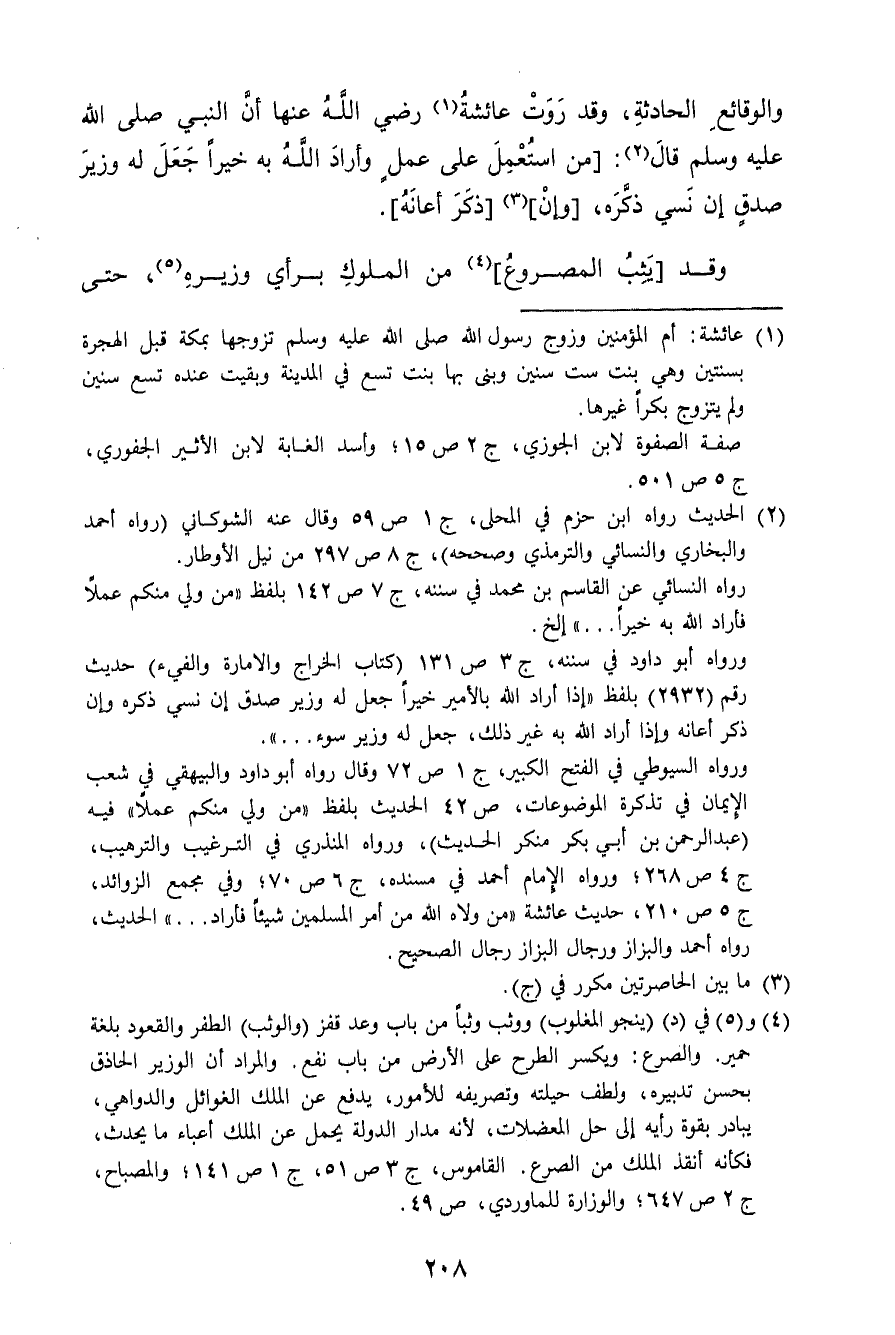 والوقائعِ الحادثةِ، وقد رَوَتْ عائشةُ(١) رضي اللَّهُ عنها أنَّ النبي صلى الله
عليه وسلم قالَ(٢): [من استُعْمِلَ على عملٍ وأرادَ اللَّهُ به خيراً جَعَلَ له وزيرَ
صدقٍ إن نَسي ذكَّرَه، [وإنْ](٣) [ذكَرَ أعانَهُ].
وقد [يَثِبُ المصروعُ](٤) من الملوكِ برأي وزيرهِ(٥)، حتى
(١) عائشة: أم المؤمنين وزوج رسول الله صلى الله عليه وسلم تزوجها بمكة قبل الهجرة
بسنتين وهي بنت ست سنين وبنى بها بنت تسع في المدينة وبقيت عنده تسع سنين
ولم يتزوج بكراً غيرها.
صفة الصفوة لابن الجوزي، ج ٢ ص ١٥؛ وأسد الغابة لابن الأثير الجفوري،
ج ٥ ص ٥٠١.
(٢) الحديث رواه ابن حزم في المحلى، ج ١ ص ٥٩ وقال عنه الشوكاني (رواه أحمد
والبخاري والنسائي والترمذي وصححه)، ج ٨ ص ٢٩٧ من نيل الأوطار.
رواه النسائي عن القاسم بن محمد في سننه، ج ٧ ص ١٤٢ بلفظ «من ولي منكم عملاً
فأراد الله به خيراً...» إلخ.
ورواه أبو داود في سننه، ج ٣ ص ١٣١ (كتاب الخراج والامارة والفيء) حديث
رقم (٢٩٣٢) بلفظ «إذا أراد الله بالأمير خيراً جعل له وزير صدق إن نسي ذكره وإن
ذكر أعانه وإذا أراد الله به غير ذلك، جعل له وزير سوء...».
ورواه السيوطي في الفتح الكبير، ج ١ ص ٧٢ وقال رواه أبو داود والبيهقي في شعب
الإيمان في تذكرة الموضوعات، ص ٤٢ الحديث بلفظ «من ولي منكم عملاً» فيه
(عبدالرحمن بن أبي بكر منكر الحديث)، ورواه المنذري في الترغيب والترهيب،
ج ٤ ص ٢٦٨؛ ورواه الإمام أحمد في مسنده، ج ٦ ص ٧٠؛ وفي مجمع الزوائد،
ج ٥ ص ٢١٠، حديث عائشة «من ولاه الله من أمر المسلمين شيئاً فأراد...» الحديث،
رواه أحمد والبزاز ورجال البزاز رجال الصحيح.
(٣) ما بين الحاصرتين مكرر في (ج).
(٤) و(٥) في (د) (ينجو المغلوب) ووثب وثباً من باب وعد قفز (والوثب) الطفر والقعود بلغة
حمير. والصرع: ويكسر الطرح على الأرض من باب نفع. والمراد أن الوزير الحاذق
بحسن تدبيره، ولطف حيلته وتصريفه للأمور، يدفع عن الملك الغوائل والدواهي،
يبادر بقوة رأيه إلى حل المعضلات، لأنه مدار الدولة يحمل عن الملك أعباء ما يحدث،
فكأنه أنقذ الملك من الصرع. القاموس، ج ٣ ص ٥١، ج ١ ص ١٤١؛ والمصباح،
ج ٢ ص ٦٤٧؛ والوزارة للماوردي، ص ٤٩.
٢٠٨